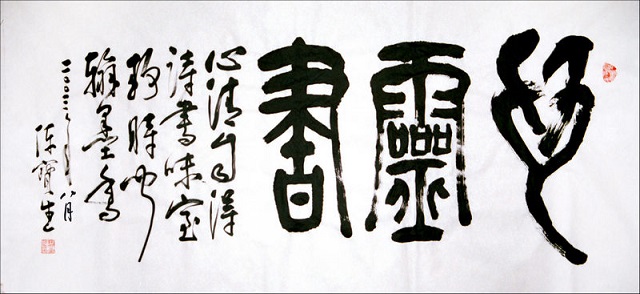 心靈書
心清自得
詩書味室
靜時聞
翰墨香
二〇〇三年
八月
陈寶生